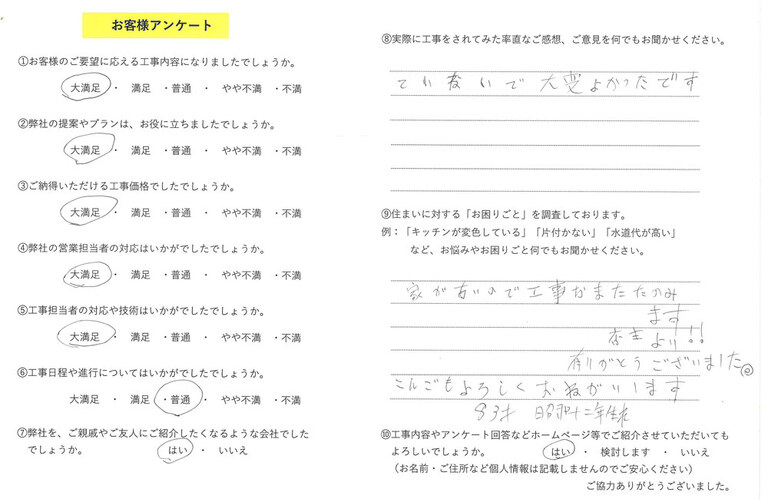 お客様アンケート
①お客様のご要望に応える工事内容になりましたでしょうか。
大満足 ・ 満足 ・普通 ・ やや不満 ・不満
②弊社の提案やプランは、お役に立ちましたでしょうか。
大満足 ・ 満足 ・普通 ・ やや不満 ・不満
③ご納得いただける工事価格でしたでしょうか。
大満足 ・ 満足 ・普通 ・ やや不満 ・不満
④弊社の営業担当者の対応はいかがでしたでしょうか。
大満足 ・ 満足 ・普通 ・ やや不満 ・不満
⑤工事担当者の対応や技術はいかがでしたでしょうか。
大満足 ・ 満足 ・普通 ・ やや不満 ・不満
⑥工事日程や進行についてはいかがでしたでしょうか。
大満足 ・ 満足 ・普通 ・ やや不満 ・不満
⑦弊社を、ご親戚やご友人にご紹介したくなるような会社でした
でしょうか。 はい ・ いいえ
⑧実際に工事をされてみた率直なご感想、ご意見を何でもお聞かせください。
ていないで 大変よかったです
⑨住まいに対する「お困りごと」を調査しております。
例：「キッチンが変色している」「片付かない」「水道代が高い」
など、お悩みやお困りごと何でもお聞かせください。
家が古いので工事がまたたかみ
ます
より!!
有りがとうございました
こんごもよろしくおねがいします
83才 昭和十二年生れ
⑩工事内容やアンケート回答などホームページ等でご紹介させていただいても
よろしいでしょうか。 はい ・ 検討します ・ いいえ
（お名前・ご住所など個人情報は記載しませんのでご安心ください）
ご協力ありがとうございました。